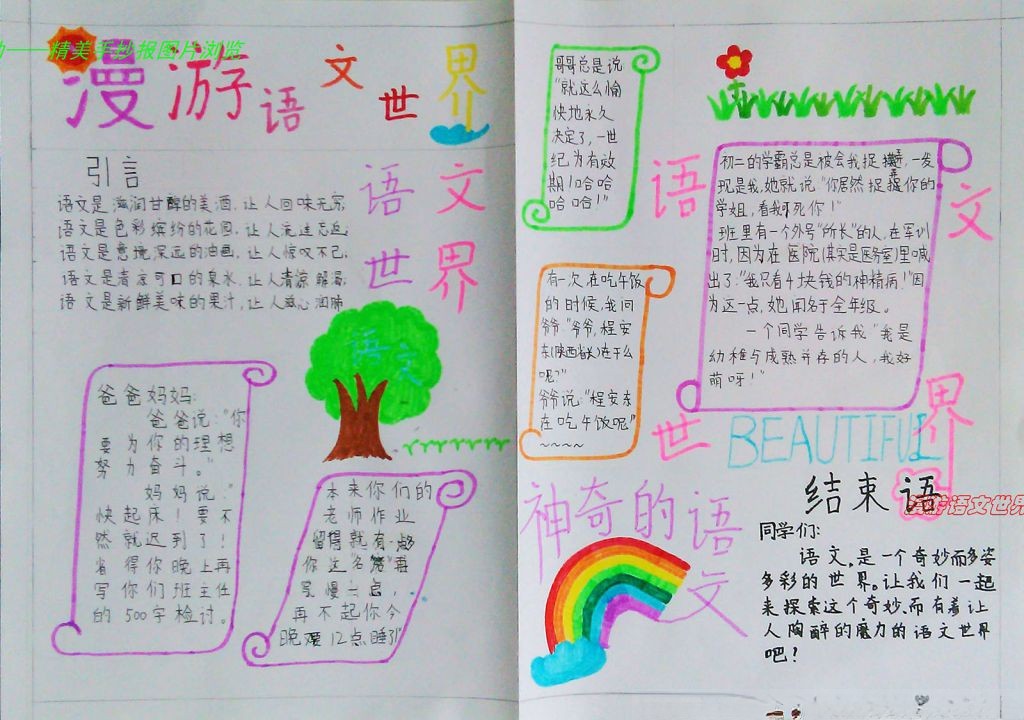 ——精美手抄报图片浏览
漫游语文世界
引言
语文是滋润甘醇的美酒,让人回味无穷,
语文是色彩缤纷的花园,让人流连忘返,
语文是意境深远的油画,让人惊叹不已,
语文是清凉可口的泉水,让人清凉解渴,
语文是新鲜美味的果汁,让人滋心润肺
语文
世界
语文
爸爸妈妈:
爸爸说:"你
要为你的理想
努力奋斗。"
妈妈说:"
快起床!要不
然就迟到了!
省得你晚上再
写你们班主任
的500字检讨。
本来你们的
老师作业
留得就有点多
你这"名笔"再
写慢一点,
再不起你今
晚 12点睡了!"
哥哥总是说
"就这么愉
快地永久
决定了,一世
纪为有效
期!哈哈
哈哈!"
有一次在吃午饭
的时候,我问
爷爷:"爷爷,程安
东(陕西省长)在干么
呢?"
爷爷说:"程安东
在吃午饭呢!"
~~~~
初二的学霸总是被会我捉 ,一发
现是我,她就说"你居然捉 你的
学姐,看我不死你!"
班里有一个外号"所长"的人,在军训
时,因为在医院(其实是医务室)里喊
出了:"我只有4块钱的神精病!"因
为这一点,她闻名于全年级。
一个同学告诉我"我是
幼稚与成熟并存的人,我好
萌呀!"
语文
世界
BEAUTIFUL
神奇的语文
结束语
语文世界
同学们:
语文,是一个奇妙而多姿
多彩的世界。让我们一起
来探索这个奇妙、而有着让
人陶醉的魔力的语文世界
吧?